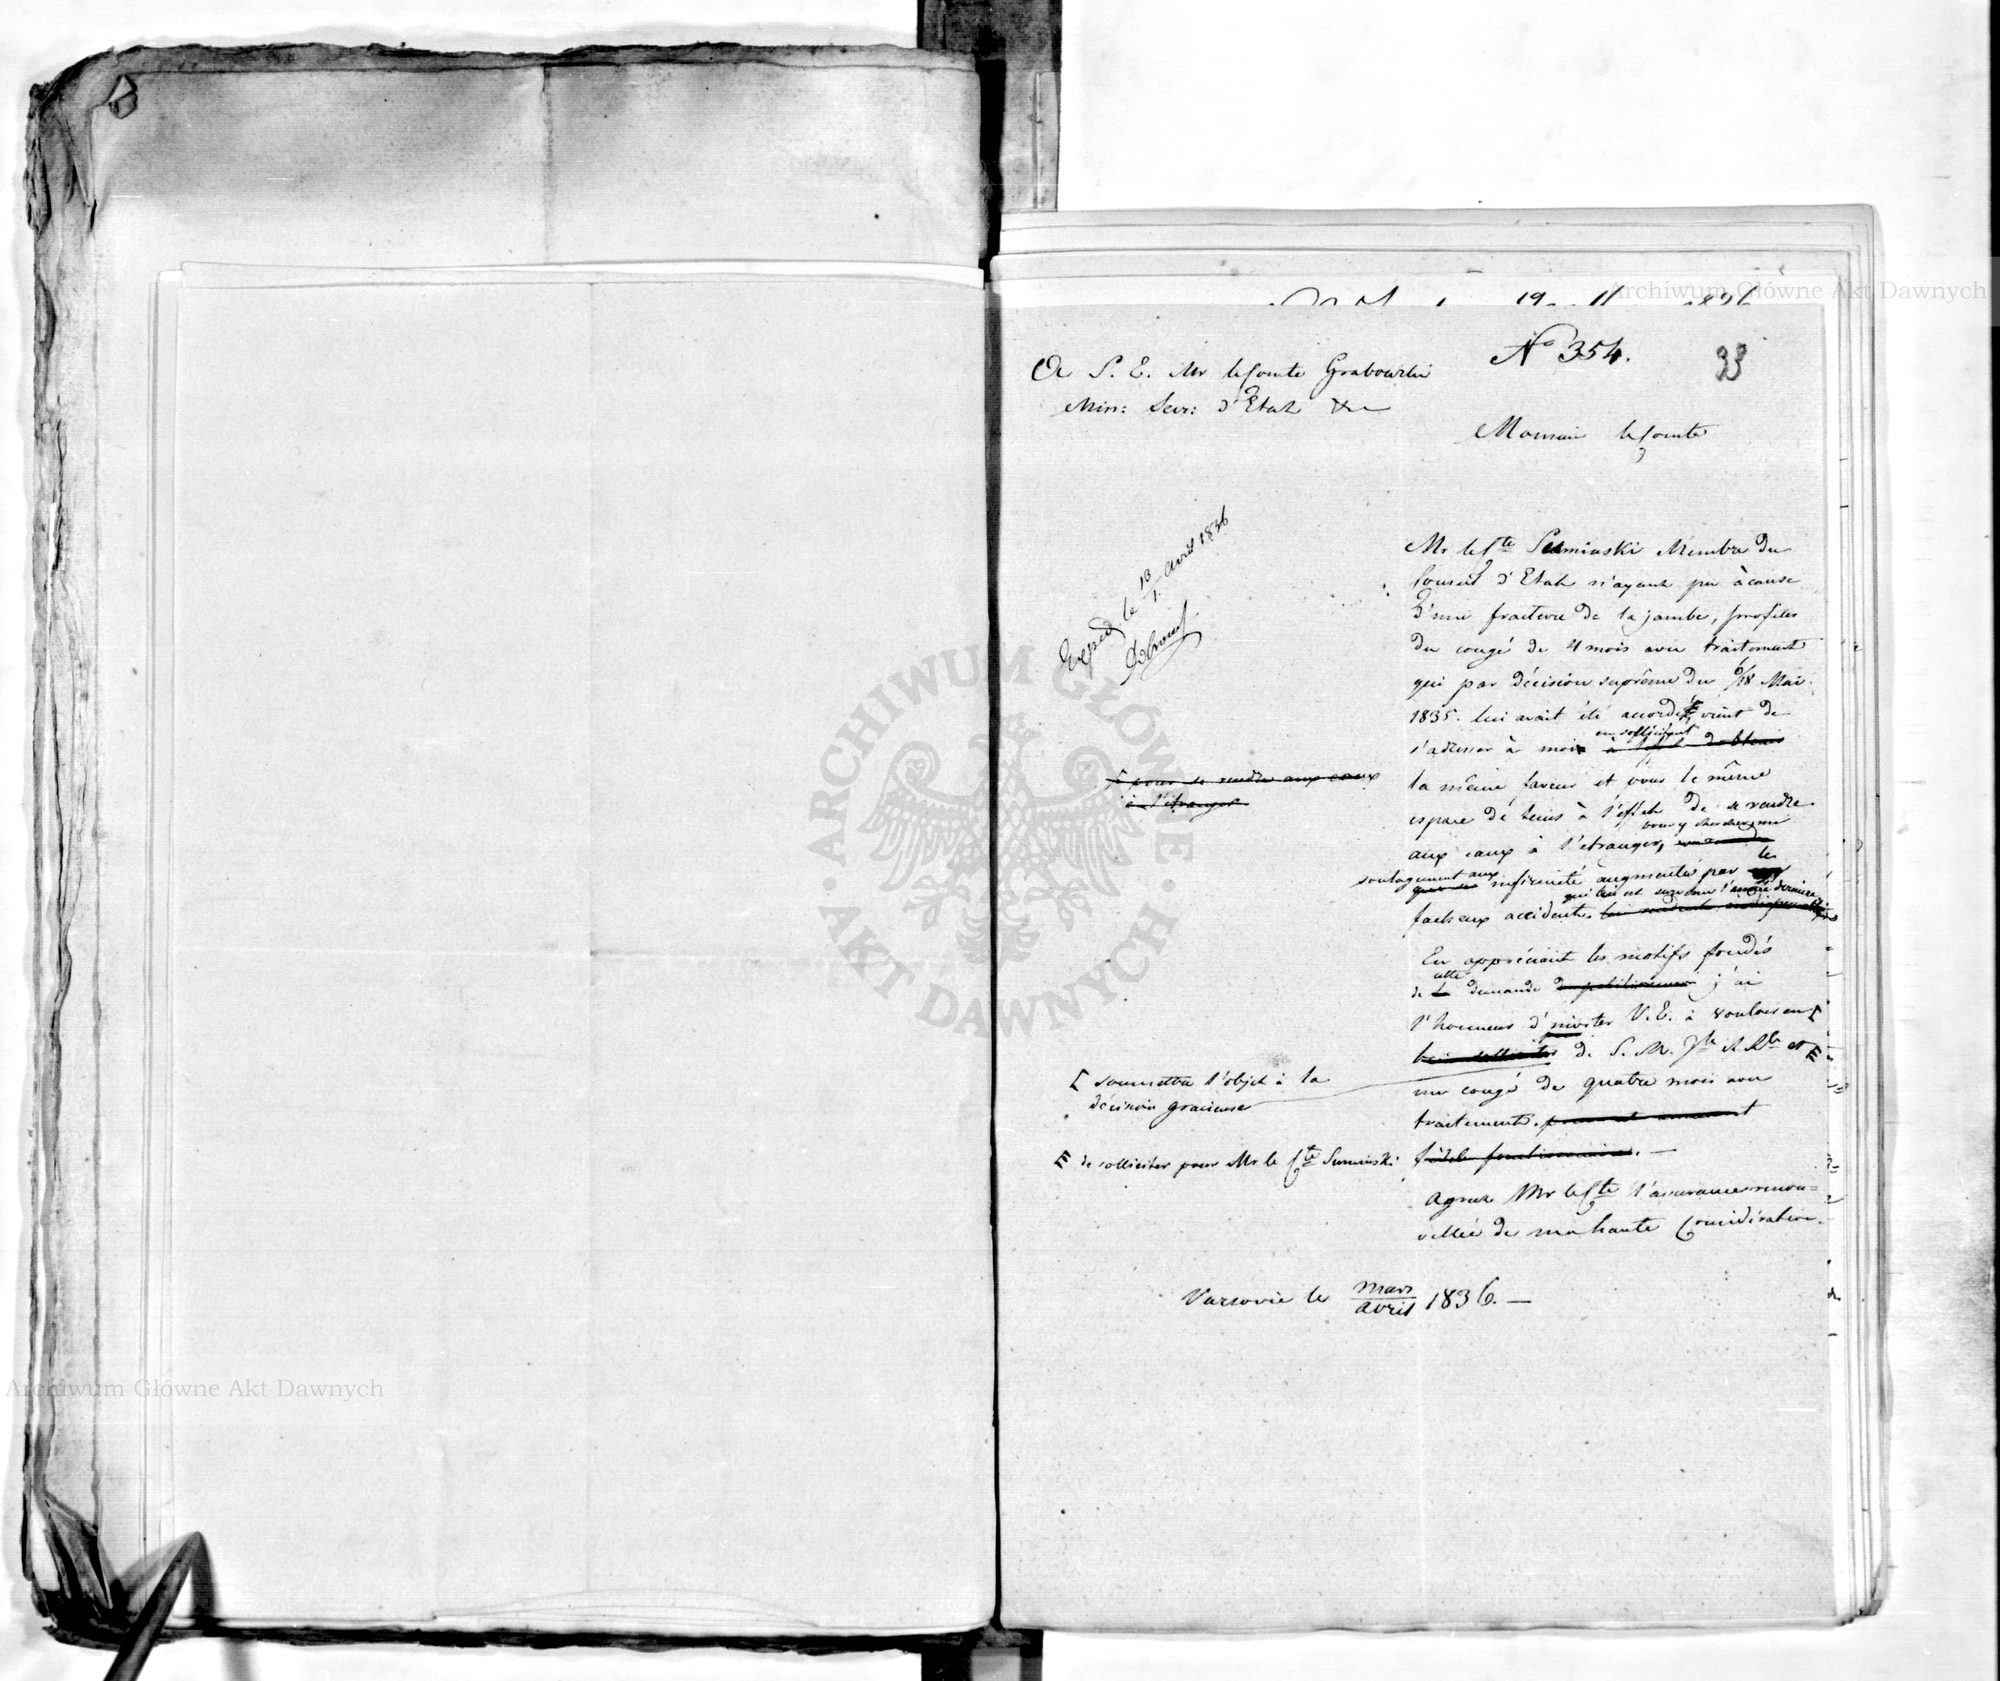 Archiwum Główne Akt Dawnych
N° 354.
33
A S. E. Mr le Comte Grabowski
Min: Secr: d'Etat &c
Monsieur le Comte
Exped. le 13/1. avril 1836
Mr le Cte Suminski Membre du
Conseil d'Etat n'ayant pu à cause
d'une fracture de la jambe, profiter
du congé de 4 mois avec traitement
qui par décision suprême du 6/18 Mai
1835. lui avait été accordé, vient de
s'adresser à moi en sollicitant à l'effet d'obtenir
la même faveur et pour le même
espace de tems à l'effet de se rendre
aux eaux à l'etranger, pour y chercher un
soulagement aux infirmité augmentées par le
facheux accident qui lui est survenu l'année dernière
pour se rendre aux eaux
à l'étranger
En appréciant les motifs fondés
de cette demande du pétitionnaire j'ai
l'honneur d'inviter V. E. à vouloir en [
de S. M. et
un congé de quatre mois avec
traitement. pour cet ancient
fidèle fonctionnaire. —
[ soumettre l'objet à la
décision gracieuse
de solliciter pour Mr le Cte Suminski
Agréez Mr le Cte l'assurance renou=
vellée de ma haute Considération.
Varsovie le mars/avril 1836. —
ARCHIWUM GŁÓWNE
AKT DAWNYCH
Archiwum Główne Akt Dawnych